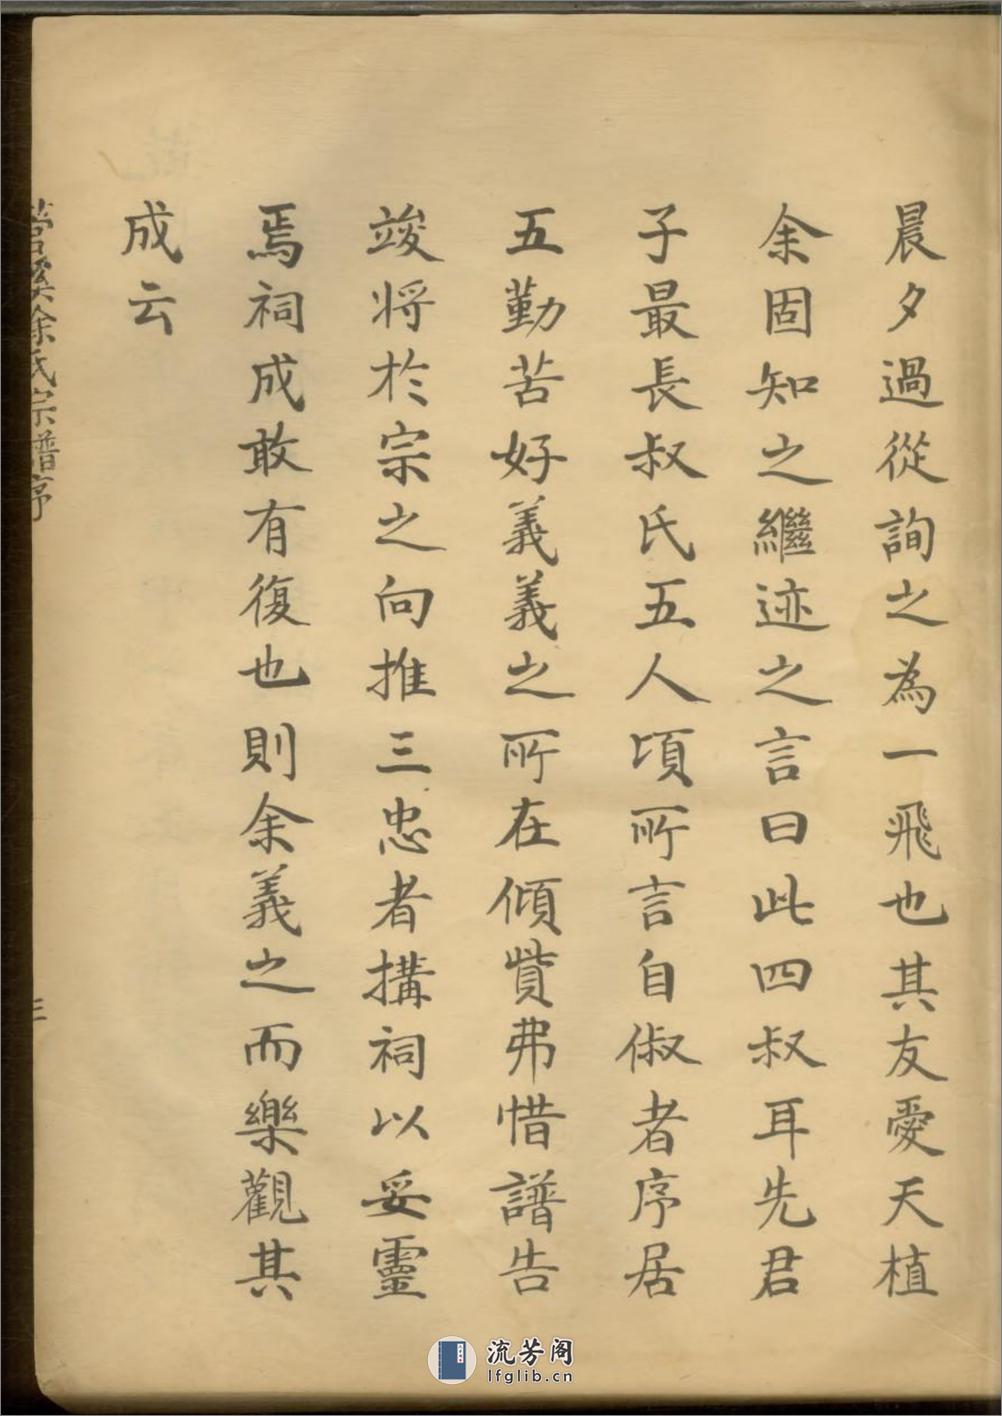 晨夕過從詢之為一飛也其友愛天植
余固知之繼迹之言曰此四叔耳先君
子最長叔氏五人頃所言自俶者序居
五勤苦好義義之所在傾貲弗惜譜告
竣將於宗之向推三忠者搆祠以妥靈
焉祠成敢有復也則余義之而樂觀其
成云
余氏宗譜序
三
流芳阁
lfglib.cn